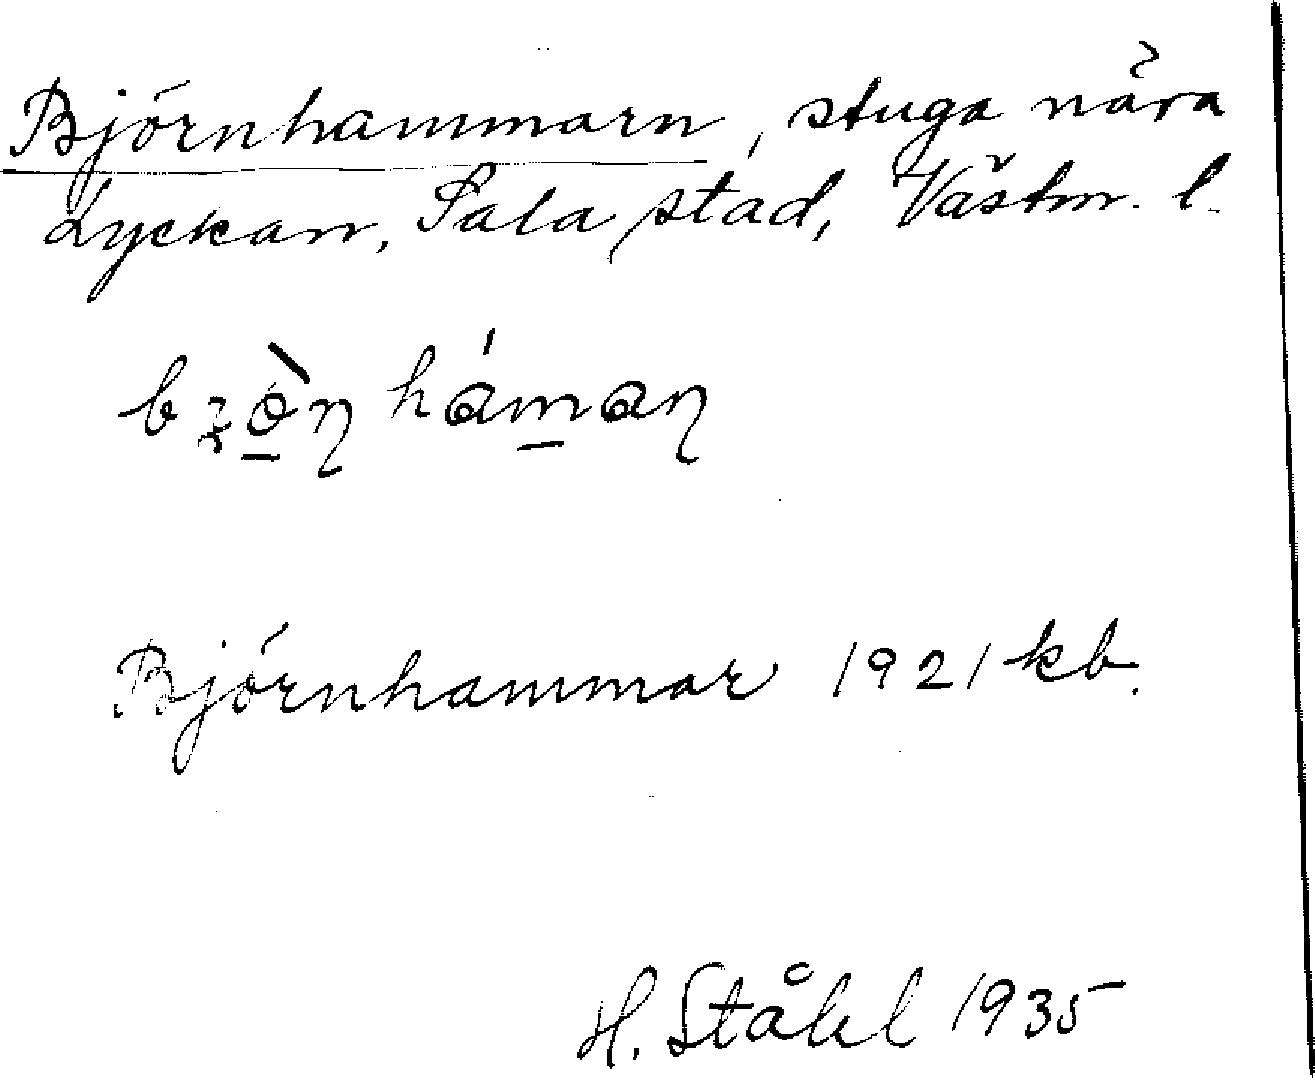 Björnhammarn, stuga nära
Lyckan, Sala stad, Västm. l.
bʒö̀ɳ háman̡
Björnhammar 1921 kb.
H. Ståhl 1935